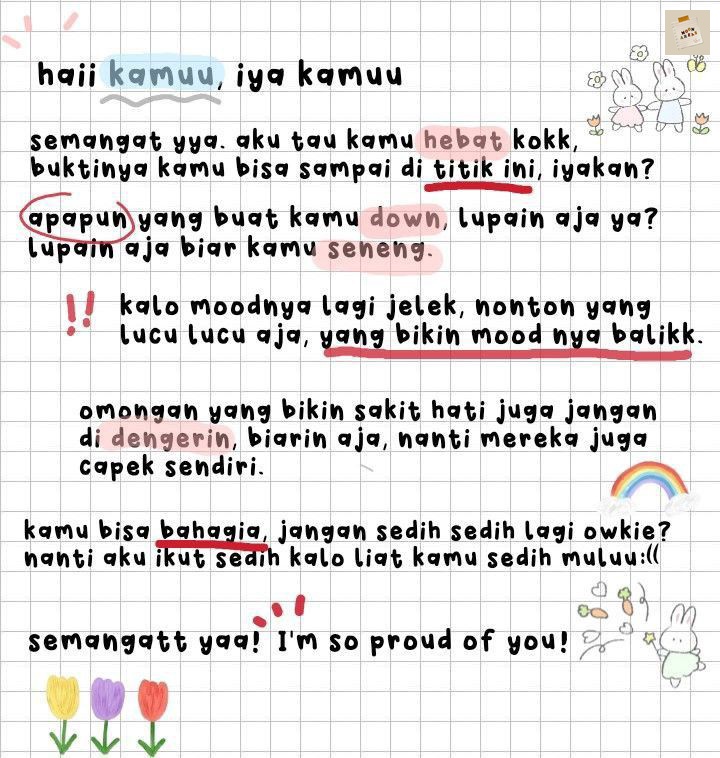 haii kamuu, iya kamuu
semangat yya. aku tau kamu hebat kokk,
buktinya kamu bisa sampai di titik ini, iyakan?
apapun yang buat kamu down, lupain aja ya?
lupain aja biar kamu seneng.
!! kalo moodnya lagi jelek, nonton yang
lucu lucu aja, yang bikin mood nya balikk.
omongan yang bikin sakit hati juga jangan
di dengerin, biarin aja, nanti mereka juga
capek sendiri.
kamu bisa bahagia, jangan sedih sedih lagi owkie?
nanti aku ikut sedih kalo liat kamu sedih muluu:((
semangatt yaa! I'm so proud of you!